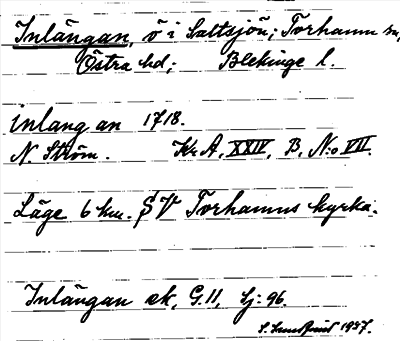 Inlängan, ö i Saltsjön; Torhamn sn,
Östra hd; Blekinge l.
inlangan 1718.
N. Ström. Kr. A, XXIV, B, No VII.
Läge 6 km. SV Torhamns kyrka.
Inlängan ek, G.11, Lj: 96
S. Lundquist 1937.